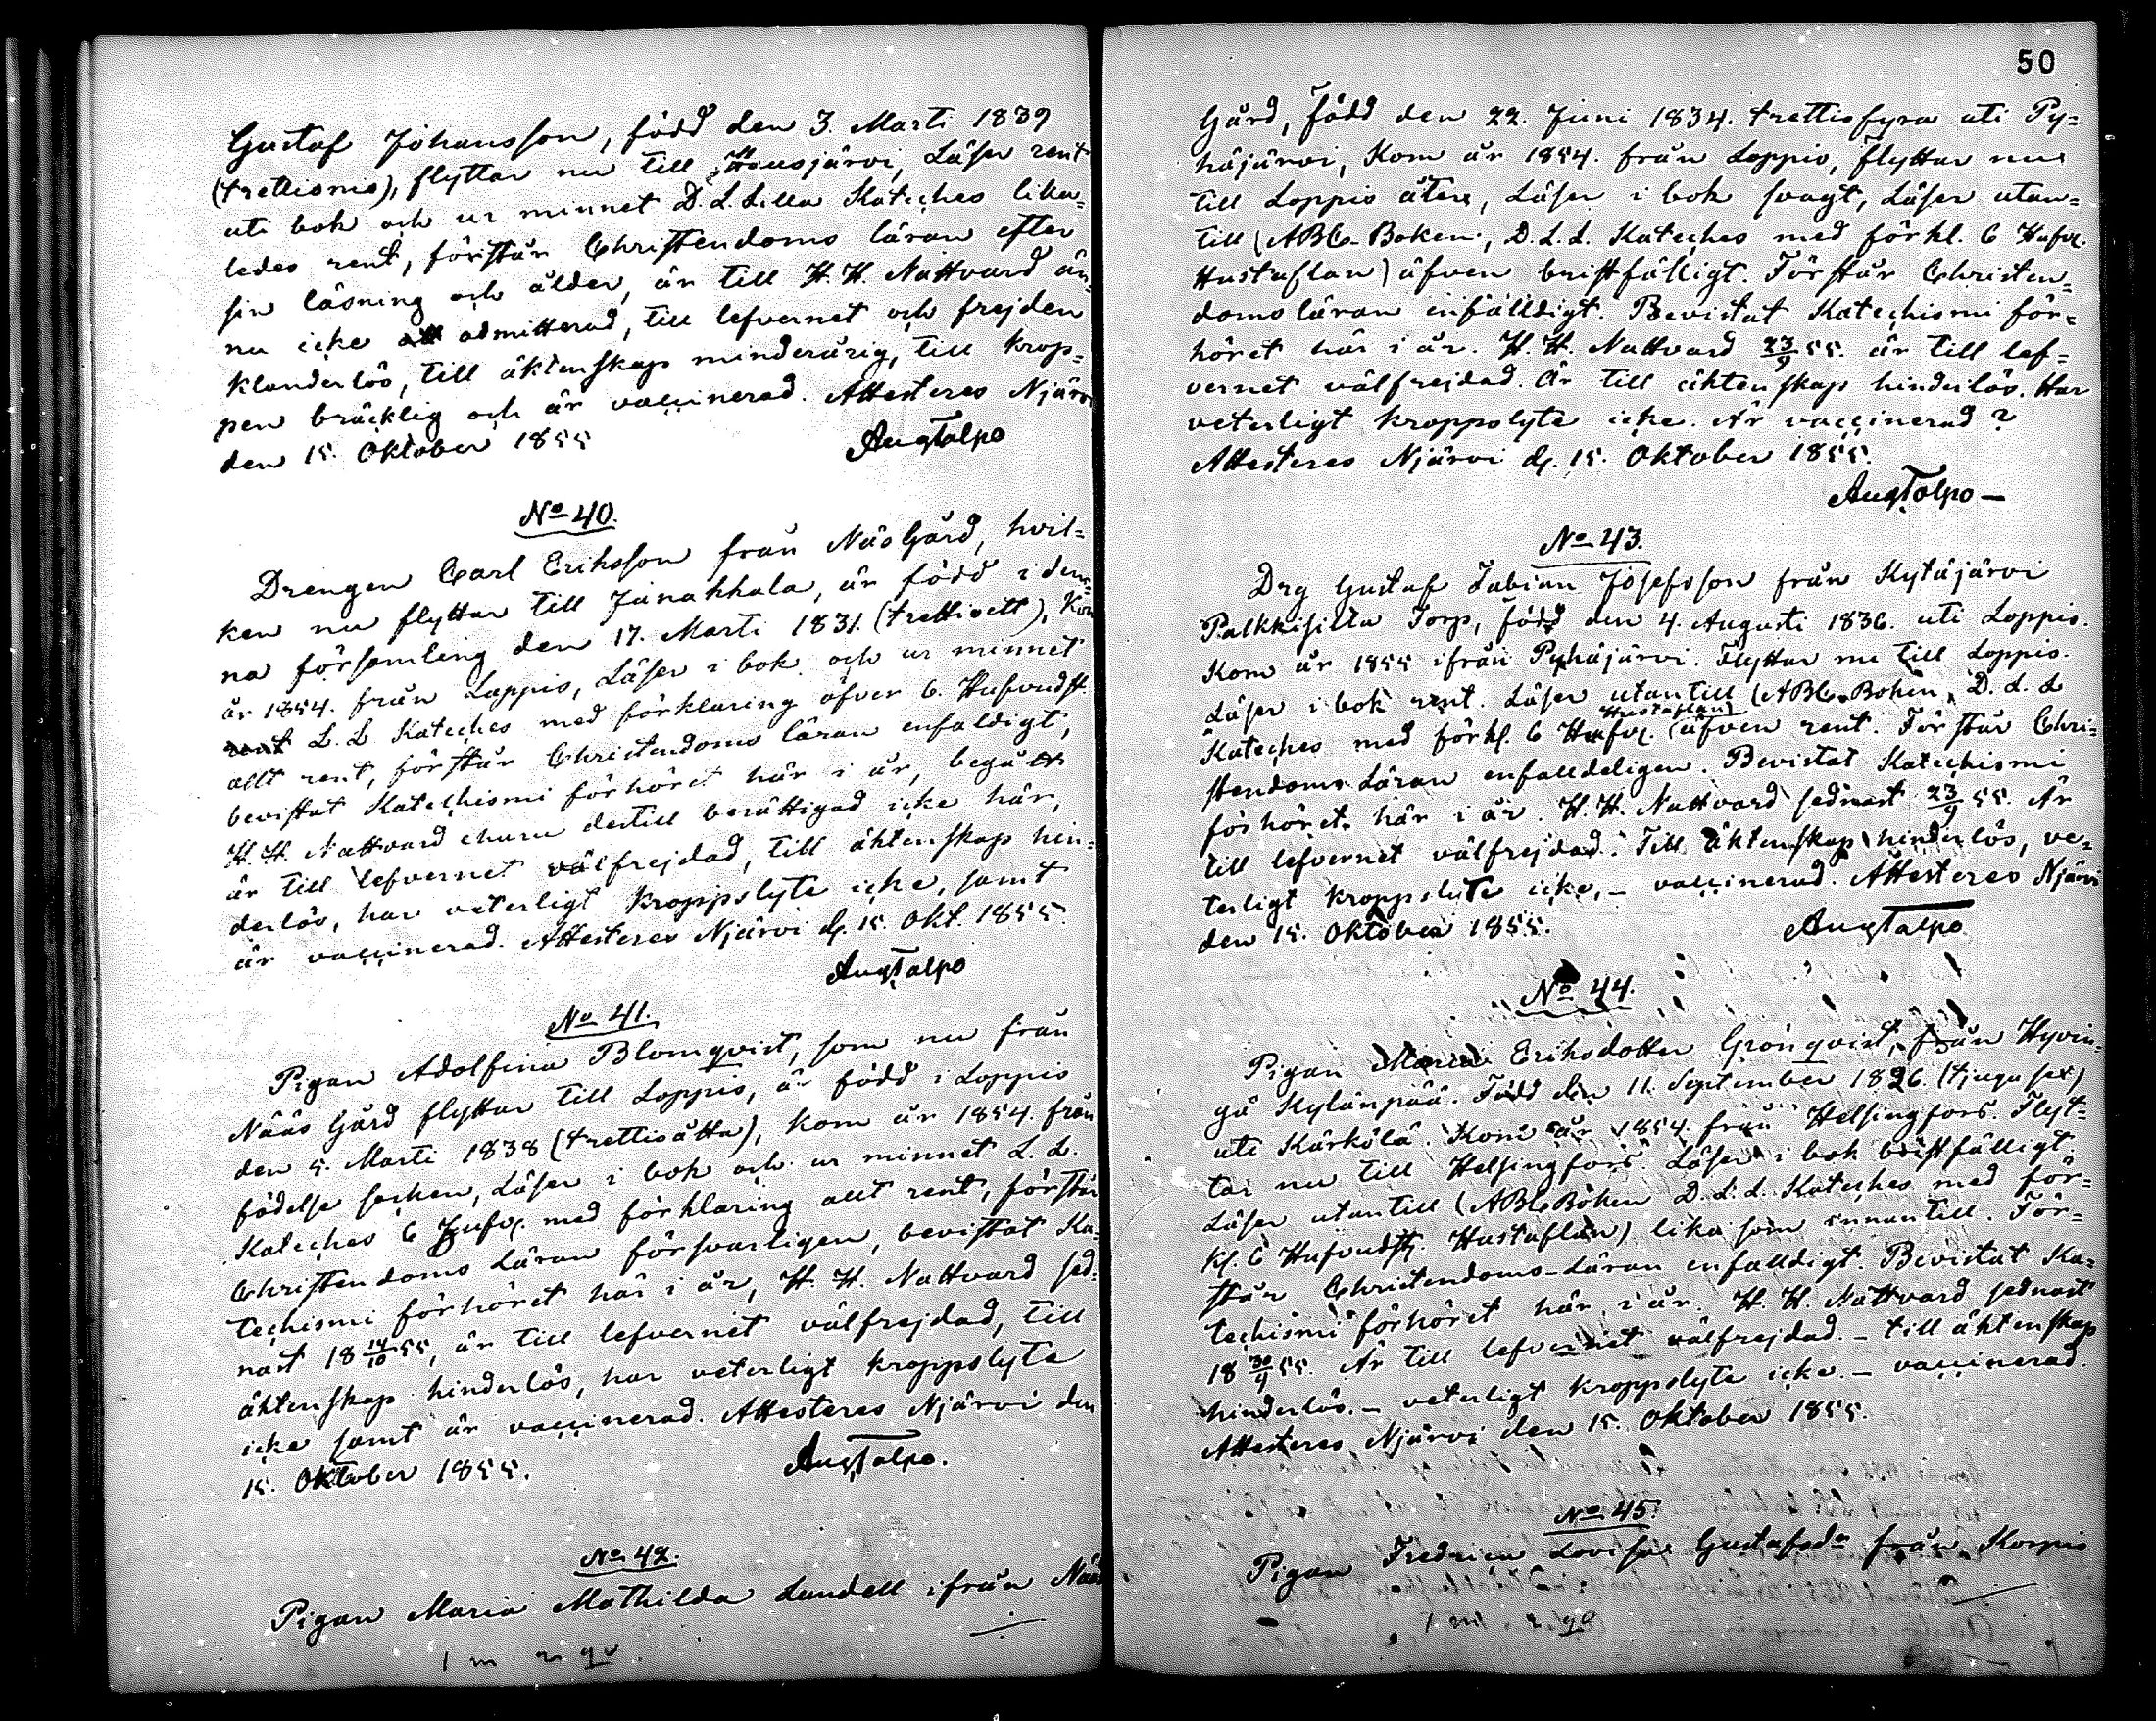 Gustaf Johansson, född den 3. Marti 1839
(trettionio), flyttar nu till Hausjärvi, Läser rent
uti bok och ur minnet D. L. Lilla Kateches lika=
ledes rent, förstår Christendoms läran efter
sin läsning och ålder, är till H. H. Nattvard än=
nu icke admitterad, till lefvernet och frejden
klanderlös, till äktenskap minderårig, till krop=
pen bräcklig och är vaccinerad. Attesteres Njärvi
den 15. Oktober 1855
Aug Talpo
No 40.
Drengen Carl Eriksson från Näs Gård, hvil=
ken nu flyttar till Janakkala, är född i den=
na församling den 17. Marti 1831. (trettioett), Kom
år 1854. från Loppis, Läser i bok och ur minnet
L. L Kateches med förklaring öfver 6. Hufvudst.
allt rent, förstår Christendoms läran enfaldigt,
bevistat Katechismi förhöret här i år, begått
H. H. Nattvard ehuru dertill berättigad icke här,
är till lefvernet välfrejdad, till äktenskap hin=
derlös, har veterligt kroppslyte icke, samt
är vaccinerad. Attesteres Njärvi d. 15. Okt. 1855.
Aug Talpo
No 41.
Pigan Adolfina Blomqvist, som nu från
Nääs Gård flyttar till Loppis, är född i Loppis
den 5. Marti 1838 (trettioåtta), kom år 1854. från
födelse socken, Läser i bok och ur minnet L. L.
Kateches 6 Hufv. med förklaring allt rent, förstår
Christendoms Läran försvarligen, bevistat Ka=
techismi förhöret här i år, H. H. Nattvard sed=
nast 18 14/10 55, är till lefvernet välfrejdad, till
äktenskap hinderlös, har veterligt kroppslyte
icke samt är vaccinerad. Attesteres Njärvi den
15. Oktober 1855.
Aug Talpo.
No 42.
Pigan Maria Mathilda Lundell ifrån Nääs
50
Gård, född den 22. Juni 1834. trettiofyra uti Py=
häjärvi, Kom år 1854. från Loppis, flyttar nu
till Loppis åter, Läser i bok svagt, Läser utan=
till (ABC-Boken, D. L. L. Kateches med förkl. 6 Hufv.
Hustaflan) äfven bristfälligt. Förstår Christen=
doms läran enfälldigt. Bevistat Katechismi för=
höret här i år. H. H. Nattvard 23/9 55. är till lef=
vernet välfrejdad. Är till äktenskap hinderlös. Har
veterligt kroppslyte icke. Är vaccinerad?
Attesteres Njärvi d. 15. Oktober 1855.
Aug Talpo—
No 43.
Drg Gustaf Fabian Josefsson från Kytäjärvi
Palkkisilta Torp, född den 4. Augusti 1836. uti Loppis.
Kom år 1855 ifrån Pyhäjärvi. Flyttar nu till Loppis.
Läser i bok rent. Läser utantill (ABC-Boken, D. L. L
Hustaflan)
Kateches med förkl. 6 Hufv. äfven rent. Förstår Chri=
stendoms Läran enfalldeligen. Bevistat Katechismi
förhöret här i år. H. H. Nattvard sednast 23/9 55. Är
till lefvernet välfrejdad. Till äktenskap hinderlös, ve=
terligt kroppslyte icke, – vaccinerad. Attesteres Njärvi
den 15. Oktober 1855.
Aug Talpo
No 44.
Pigan Maria Eriksdotter Grönqvist, från Hyvin=
gä Kylänpää. Född den 11. September 1826. (tjugu sex)
uti Kärkölä. Kom år 1854. från Helsingfors. Flyt=
tar nu till Helsingfors. Läser i bok bristfälligt.
Läser utantill (ABC Boken D. L. L. Kateches med för=
kl. 6 Hufvudst. Hustaflan) lika som innantill. För=
står Christendoms-Läran enfalldigt. Bevistat Ka=
techismi förhöret här i år. H. H. Nattvard sednast
18 30/9 55. Är till lefvernet välfrejdad. – till äktenskap
hinderlös. – veterligt kroppslyte icke. – vaccinerad.
Attesteres Njärvi den 15. Oktober 1855.
No 45.
Pigan Fredrica Lovisa Gustafsdr från Korpis